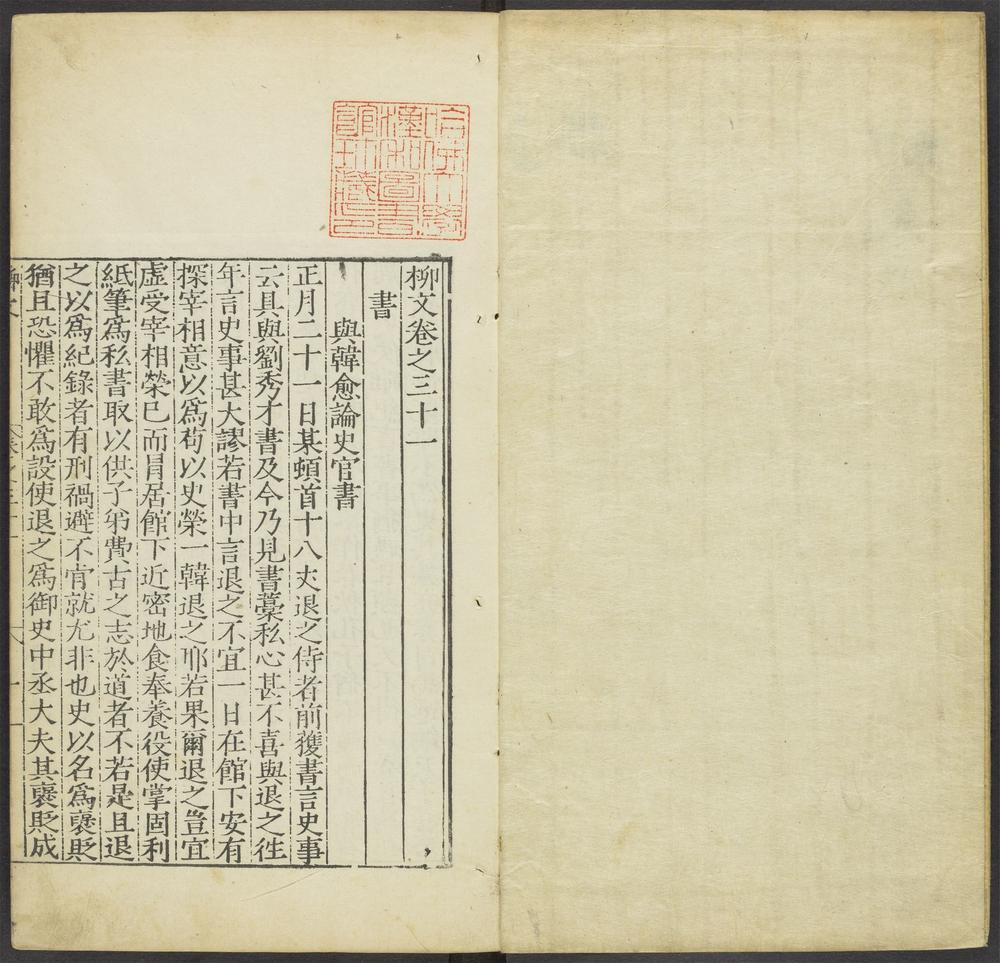 柳文卷之三十一
書
與韓愈論史官書
正月二十一日某頓首十八丈退之侍者前獲書言史事
云具與劉秀才書及今乃見書藁私心甚不喜與退之徃
年言史事甚大謬若書中言退之不宜一日在館下安有
探宰相意以爲苟以史榮一韓退之耶若果爾退之豈宜
虛受宰相榮已而冐居館下近密地食奉養役使掌固利
紙筆爲私書取以供子弟費古之志於道者不若是且退
之以爲紀錄者有刑禍避不肯就尤非也史以名爲襃貶
猶且恐懼不敢爲設使退之爲御史中丞大夫其襃貶成
哈佛大學
漢和圖書
館珍藏印